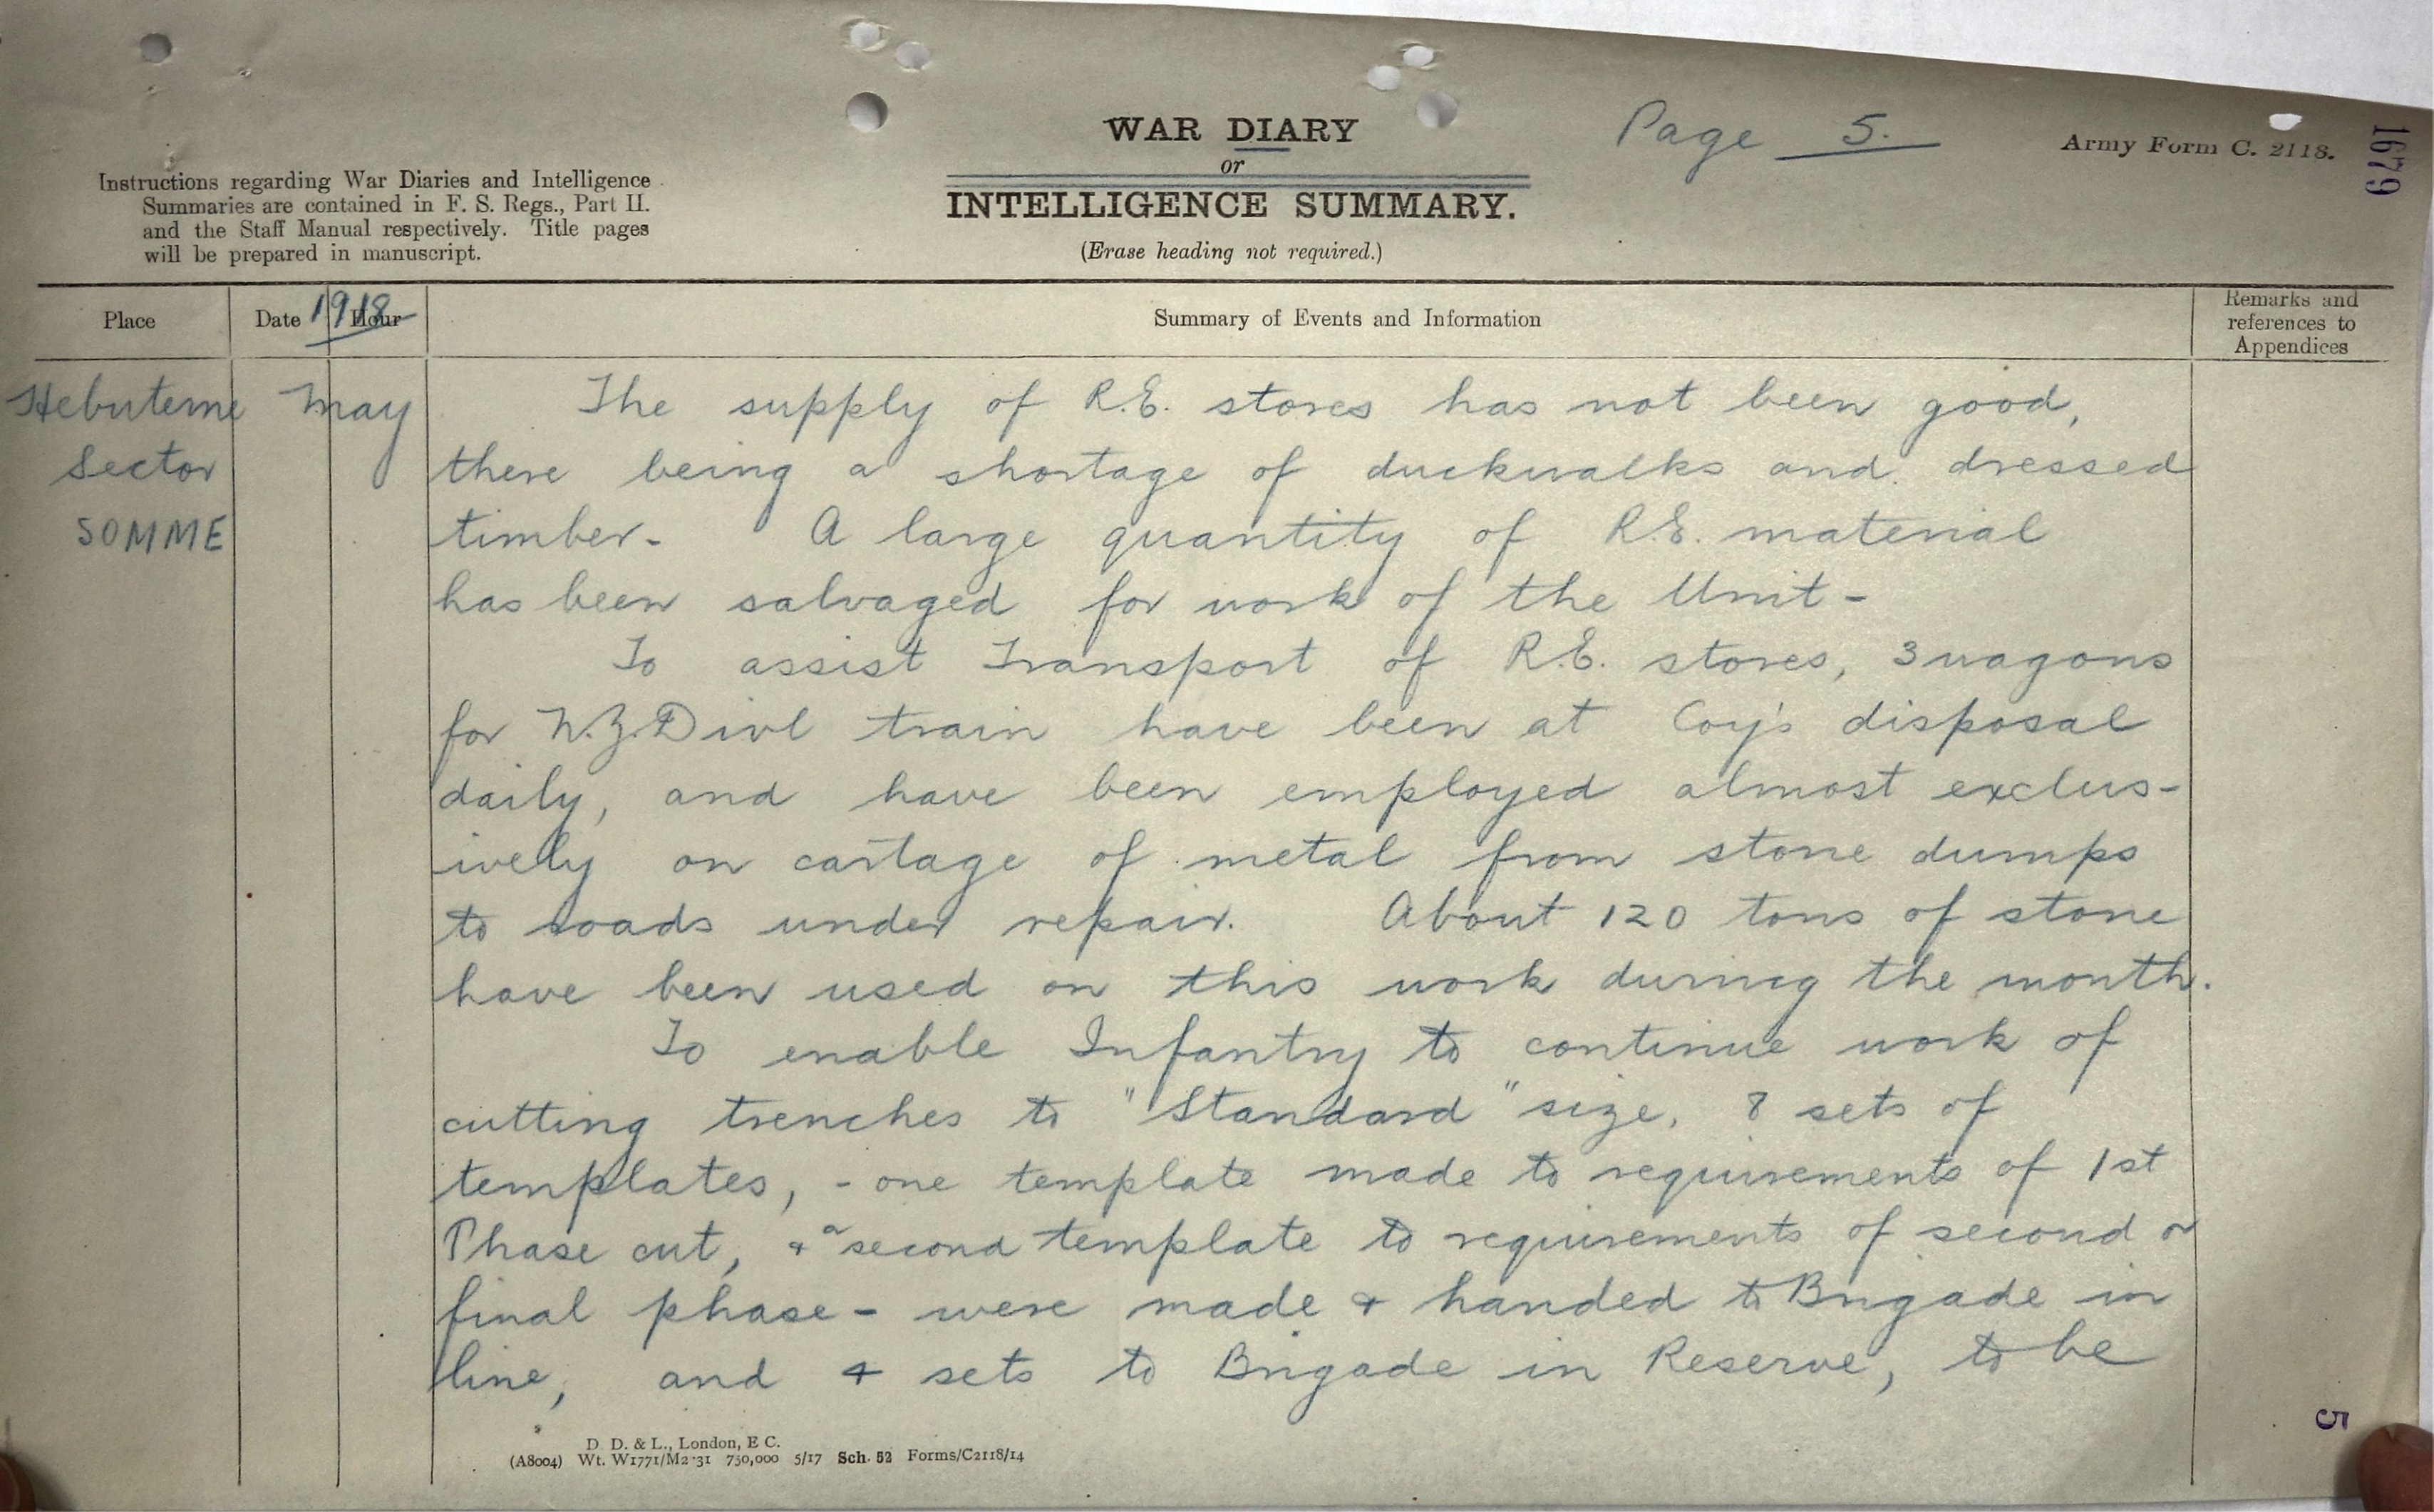 WAR DIARY
or
INTELLIGENCE SUMMARY.
(Erase heading not required.)
Page 5.
Army Form C. 2118.
1679
Instructions regarding War Diaries and Intelligence
Summaries are contained in F. S. Regs., Part II.
and the Staff Manual respectively. Title pages
will be prepared in manuscript.
Place
Date
1918
Hour
Summary of Events and Information
Remarks and
references to
Appendices
Hebuterne
Sector
SOMME
May
The supply of R.E. stores has not been good,
there being a shortage of duckwalks and dressed
timber. A large quantity of R.E. material
has been salvaged for work of the Unit-
To assist Transport of R.E. stores, 3 wagons
for N.Z. Divl train have been at Coy's disposal
daily, and have been employed almost exclus-
ively on cartage of metal from stone dumps
to roads under repair. About 120 tons of stone
have been used on this work during the month.
To enable Infantry to continue work of
cutting trenches to "Standard" size, 8 sets of
templates, - one template made to requirements of 1st
Phase cut, & a second template to requirements of second or
final phase - were made & handed to Brigade in
line, and 4 sets to Brigade in Reserve, to be
D. D. & L., London, E C.
(A8004) Wt. W1771/M2·31 750,000 5/17 Sch. 52 Forms/C2118/14
5